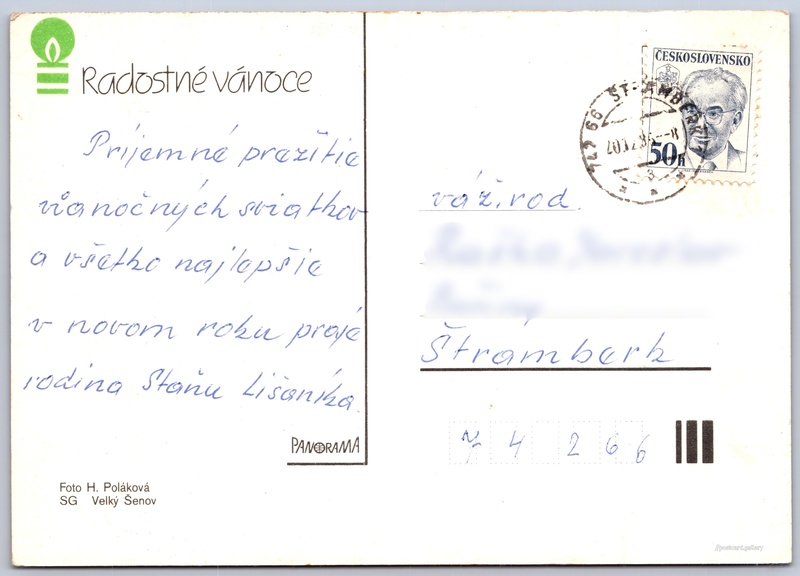 Radostné vánoce
Príjemné prežitie
vianočných sviatkov
a všetko najlepšie
v novom roku praje
rodina Staňu Lišaníka.
PANORAMA
Foto H. Poláková
SG Velký Šenov
ČESKOSLOVENSKO
50h
742 66 ŠTRAMBERK
váž. rod.
Štramberk
74266